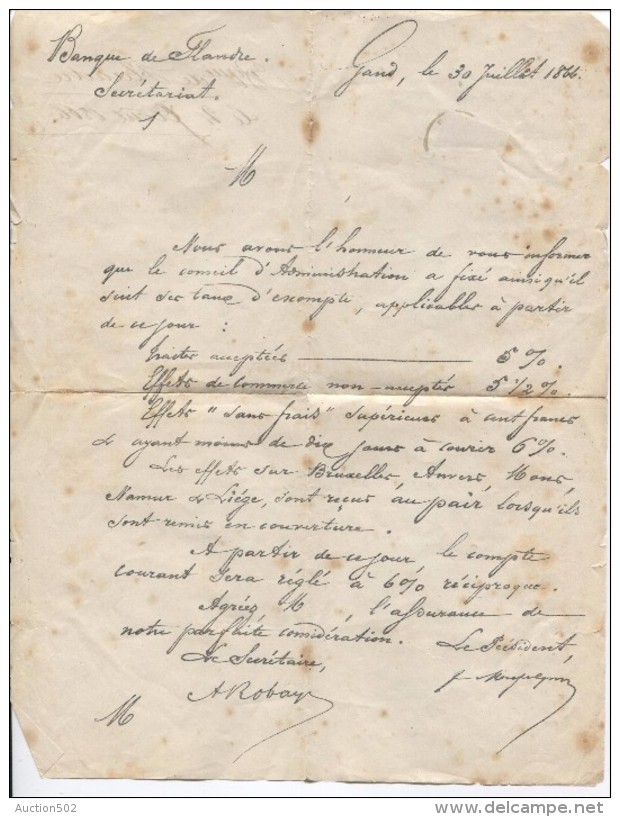 Banque de Flandre.
Secrétariat.
Gand, le 30 Juillet 1866.
M
Nous avons l'honneur de vous informer
que le conseil d'Administration a fixé ainsi qu'il
suit ses taux d'escompte, applicables à partir
de ce jour :
traites acceptées 5 %.
Effets de commerce non-acceptés 5 1/2 %.
Effets "sans frais" supérieurs à cent francs
& ayant moins de dix jours à courir 6 %.
Les effets sur Bruxelles, Anvers, Mons,
Namur & Liége, sont reçus au pair, lorsqu'ils
sont remis en couverture.
A partir de ce jour le compte
courant sera réglé à 6 % réciproque.
Agréez M l'assurance de
notre parfaite considération.
Le Président,
Le Secrétaire,
M
Auction502
delcampe.net